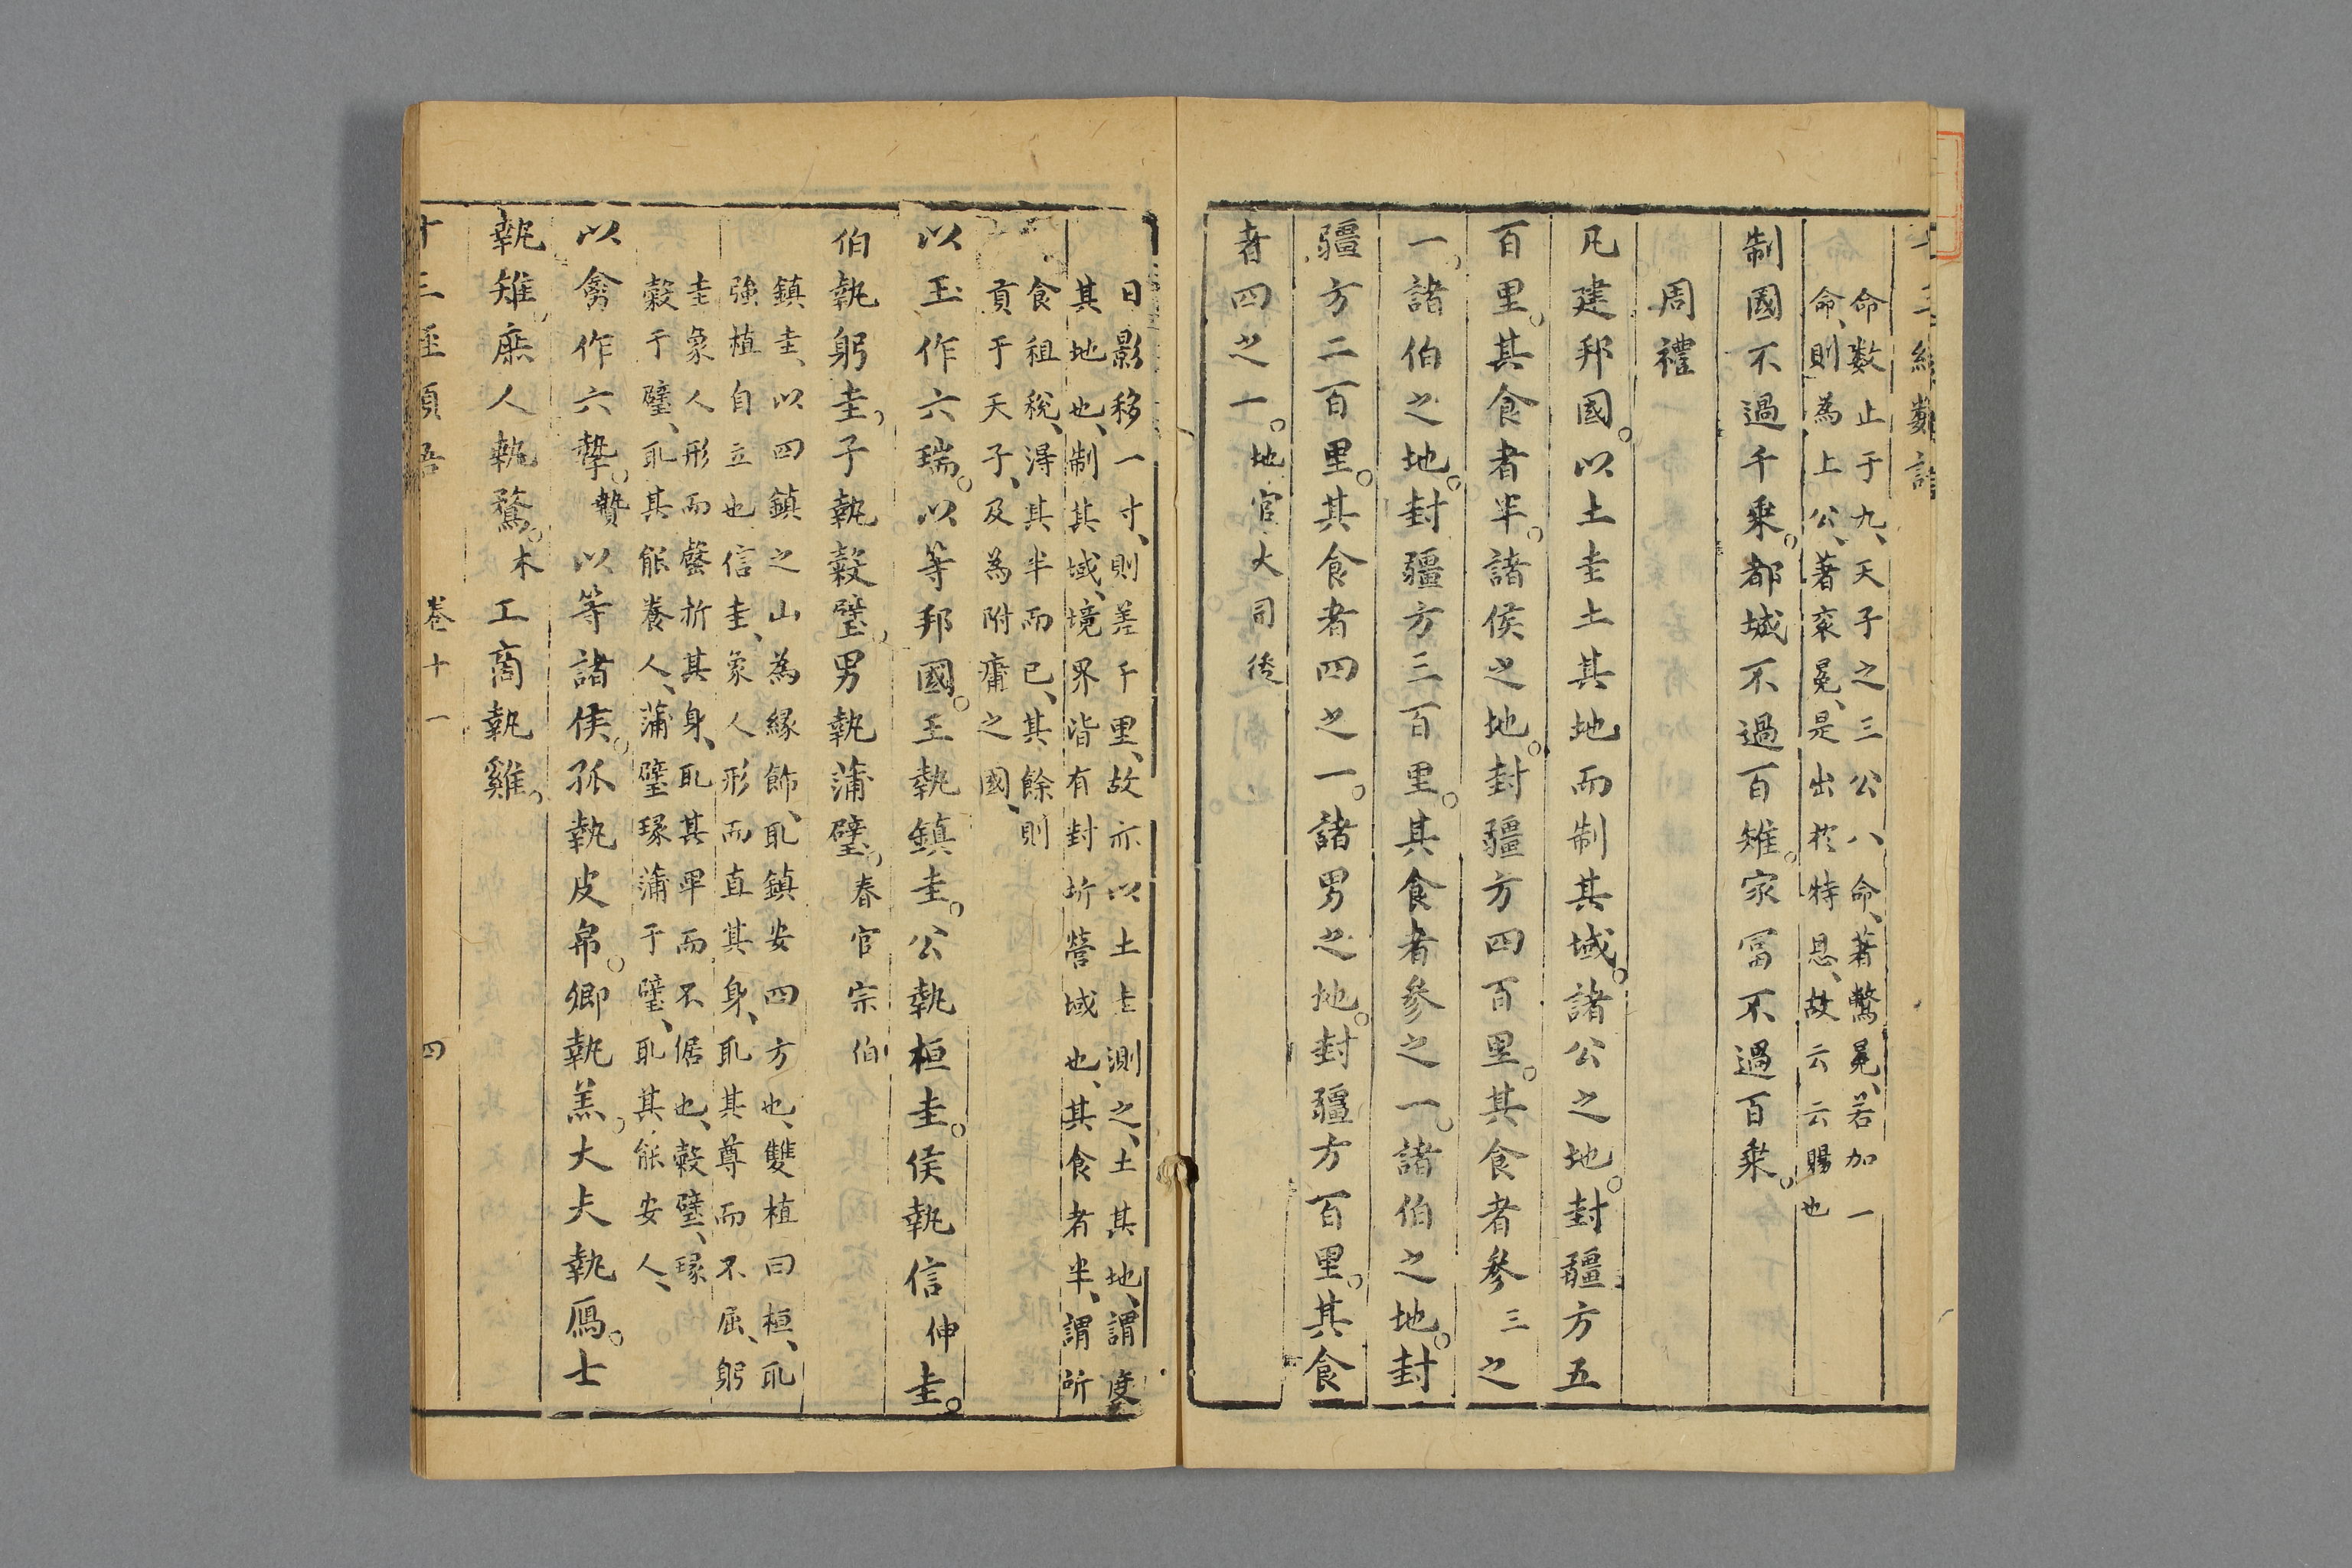 命数止于九、天子之三公八命、著鷩冕、若加一
命、則為上公、著衮冕、是出於特恩、故云云賜也
制國不過千乗。都城不過百雉。家冨不過百乗。
周禮
凡建邦國。以土圭土其地而制其域。諸公之地。封疆方五
百里。其食者半。諸侯之地。封疆方四百里。其食者參三之
一。諸伯之地。封疆方三百里。其食者參之一。諸伯之地。封
疆方二百里。其食者四之一。諸男之地。封疆方百里。其食
者四之一。地官大司徒
日影移一寸、則差千里、故亦以土圭測之、土其地、謂度
其地也、制其域、境界皆有封圻營域也、其食者半、謂所
食租稅、淂其半而已、其餘則
貢于天子、及為附庸之國、
以玉作六瑞。以等邦國。王執鎮圭。公執桓圭。侯執信伸圭。
伯執躬圭。子執穀璧。男執蒲璧。春官宗伯
鎮圭、以四鎮之山為縁飾、取鎮安四方也、雙植曰桓、取
強植自立也信圭、象人形而直其身、取其尊而不屈、躬
圭象人形而罄折其身、取其畢而不倨也、穀璧、瑑
穀于璧、取其能養人、蒲璧瑑蒲于璧、取其能安人、
以禽作六摯。贄以等諸侯。孤執皮帛。卿執羔。大夫執鴈。士
執雉。庶人執鶩。木工商執雞。
卷十一
四